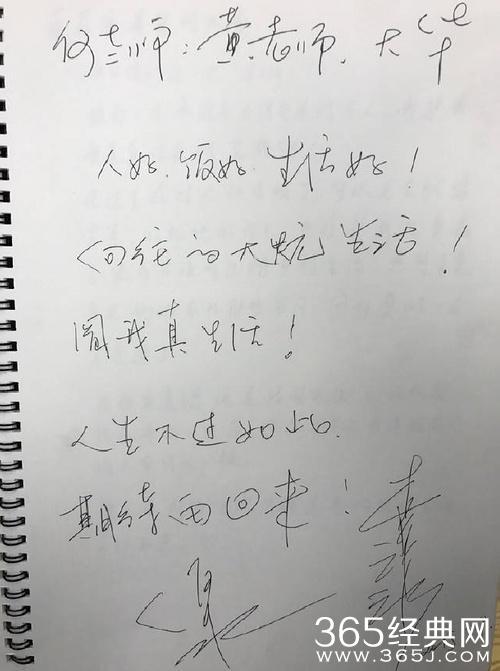 何老师:黄老师.大华
人好.饭好.生活好!
向往的大炕生活!
我真生活!
人生不过如此.
期待再回来!
365经典网
www.365J.com